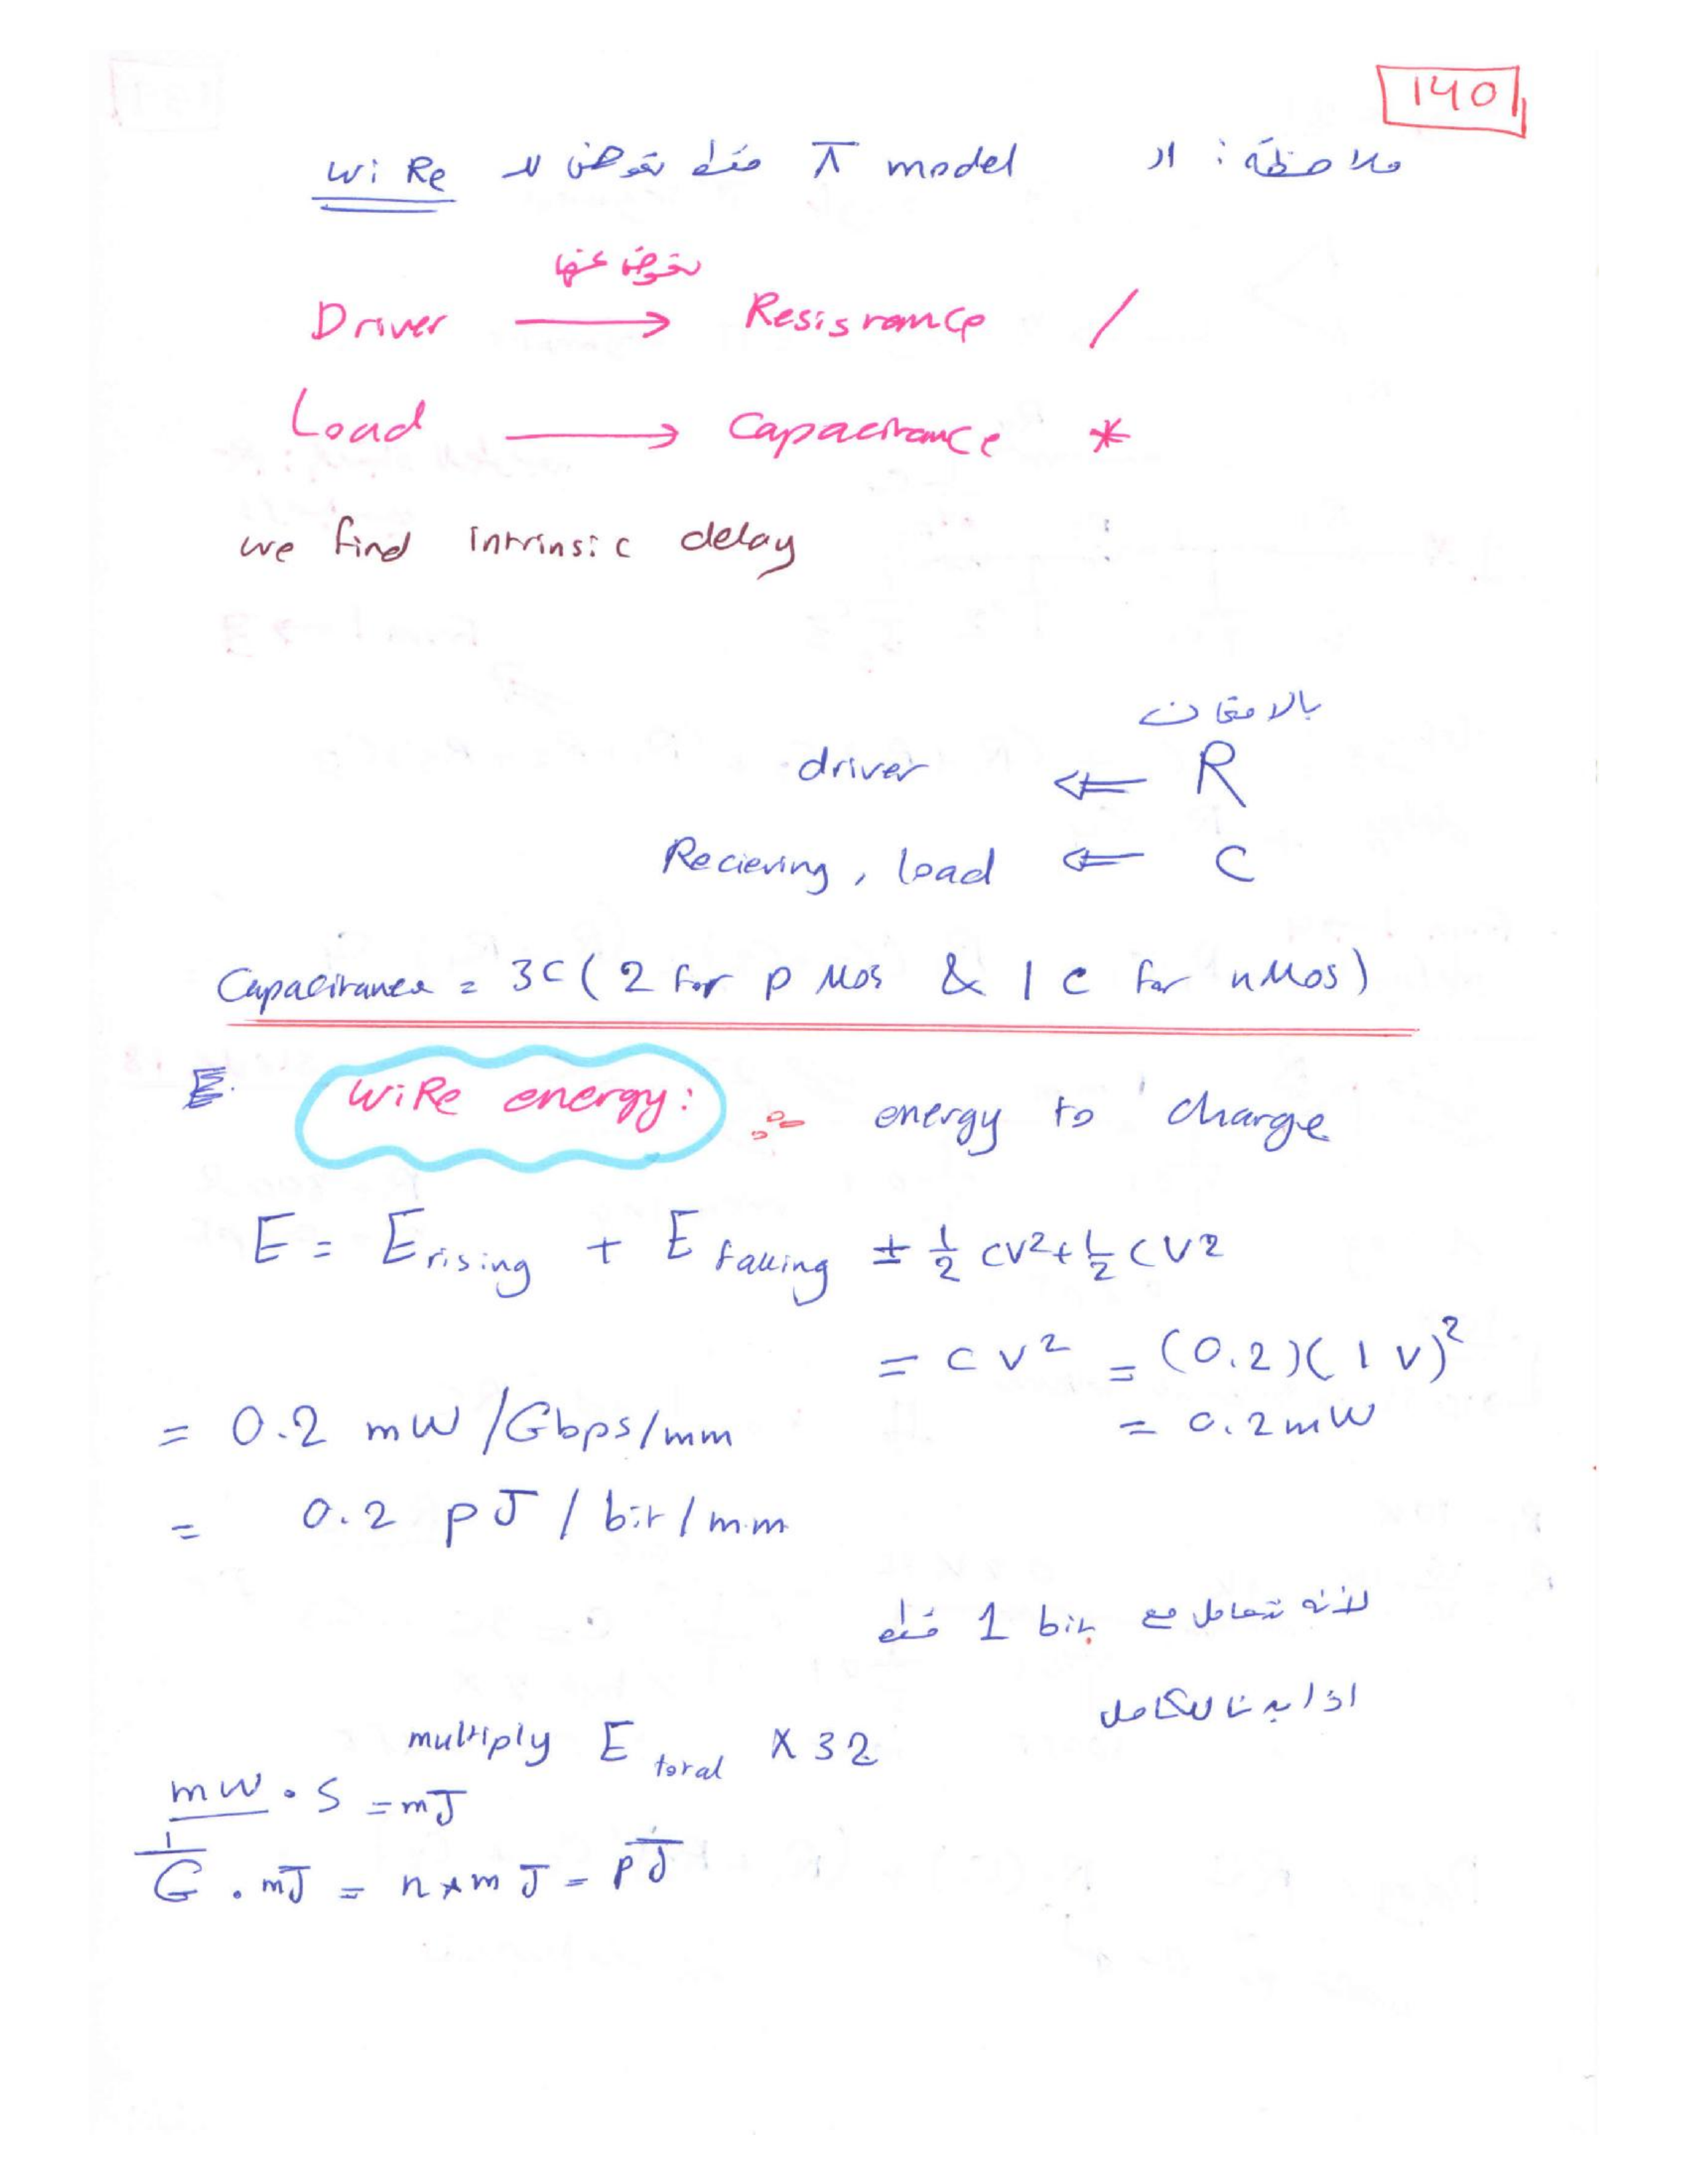 140
ملاحظة : ال π model فقط نعوض لل wiRe
نعوض عنها
Driver → Resisrance /
Load → Capacitance *
we find intrinsic delay
بالامتحان
driver ⇐ R
Recieving , load ⇐ C
Capacitance = 3C ( 2 for p Mos & 1 C for nMos )
WiRe energy : energy to charge
E = E rising + E falling = 1/2 CV2 + 1/2 CV2
= C V² = (0.2)( 1 V)²
= 0.2 mW
= 0.2 mW /Gbps/mm
= 0.2 pJ / bit / mm
لأنه نتعامل مع 1 bit فقط
اذا بدنا الكامل
multiply E total X 32
mW . S = mJ
1/G . mJ = n * m J = pJ